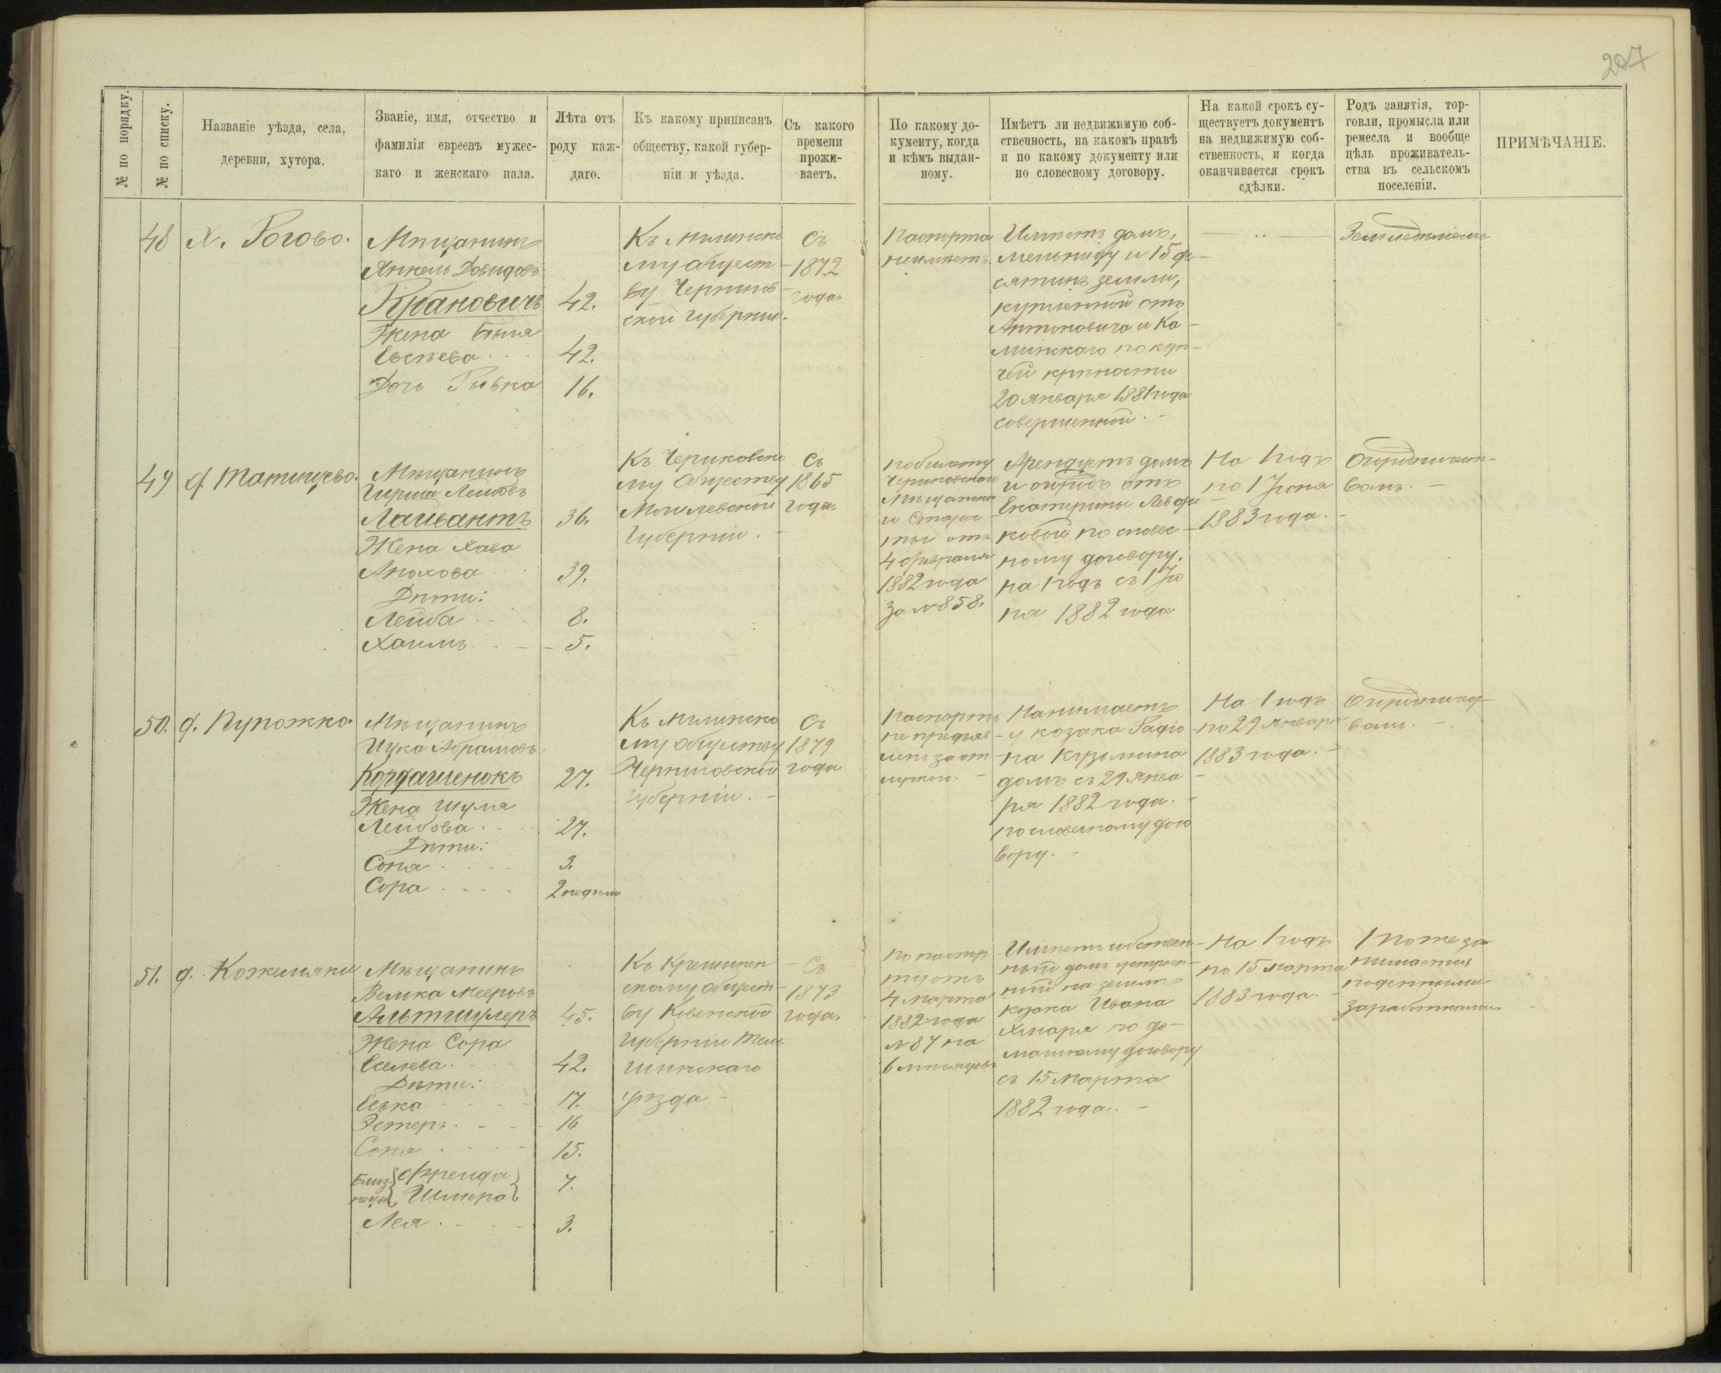 207
№ по порядку.
№ по списку.
Названіе уѣзда, села,
деревни, хутора.
Званіе, имя, отчество и
фамилія евреевъ мужес-
каго и женскаго пала.
Лѣта отъ
роду каж-
даго.
Къ какому приписанъ
обществу, какой губер-
ніи и уѣзда.
Съ какого
времени
прожи-
ваетъ.
По какому до-
кументу, когда
и кѣмъ выдан-
ному.
Имѣетъ ли недвижимую соб-
ственность, на какомъ правѣ
и по какому документу или
по словесному договору.
На какой срокъ су-
ществуетъ документъ
на недвижимую соб-
ственность, и когда
оканчивается срокъ
сдѣлки.
Родъ занятія, тор-
говли, промысла или
ремесла и вообще
цѣль проживатель-
ства въ сельскомъ
поселеніи.
ПРИМѢЧАНІЕ.
48
Х. Рогово.
Мѣщанинъ
Янкель Довидовъ
Жена Бейля
Евсѣева
Дочь Рывка
42.
42.
16.
Къ Мглинско
му общест-
ву Чернигов-
ской губерніи.
Съ
1872
года
Паспорта
неимѣетъ.
Имѣетъ домъ,
мельницу и 15 де-
сятинъ земли,
купленной отъ
Антоновича и Ка-
минскаго по куп-
чей крѣпости
20 января 1881 года
совершенной.
Земледѣліемъ
49
д. Татищево.
Мѣщанинъ
Гирша Лейбовъ
Лайвантъ
Жена Хава
Дѣти:
Лейба
Хаимъ
36.
39.
8.
5.
Къ Чериковско
му Обществу
Могилевской
Губерніи.
Съ
1865
года.
По билету
Чериковскаго
Мѣщанска
го Старос-
ты отъ
4 февраля
1882 года
за № 858.
Арендуетъ домъ
и отъ
Екатерины
по словес-
ному договору.
на 1 годъ съ 1 Iю
ня 1882 года
На 1 годъ
по 1 Iюня
1883 года.
50.
д.
Мѣщанинъ
Ицка Абрамовъ
Кордашенокъ
Жена Шума
Лейбова
Дѣти:
Соня
Сора
27.
27.
3.
2 недѣли
Къ Мглинско
му обществу
Черниговской
губерніи.
Съ
1879
года
Паспортъ
не предъяв-
ленъ
Нанимаетъ
у козака Радіо-
на Кузьмина
домъ съ 29 янва-
ря 1882 года.
по словесному дого
вору.
На 1 годъ
по 29 января
1883 года.
51.
д. Кожемяки
Мѣщанинъ
Велька Мееровъ
Альтшулеръ
Жена Сора
Дѣти:
Еська
Эстеръ
Соня
Близ
нецы
Фрейда
Шмера
Лея
45.
42.
17.
16
15.
7.
3.
скому общест-
ву Ковенской
Губерніи Тель
шинскаго
уѣзда
Съ
1873
года.
По паспор
ту отъ
4 марта
1882 года
№ 87 на
6 мѣсяцевъ
Имѣетъ собствен-
ный домъ устроен-
ный на землѣ
козака Ивана
Хмаря по до-
машнему договору
съ 15 марта
1882 года.
На 1 годъ
по 15 марта
1883 года
нимается
поденными
заработками.